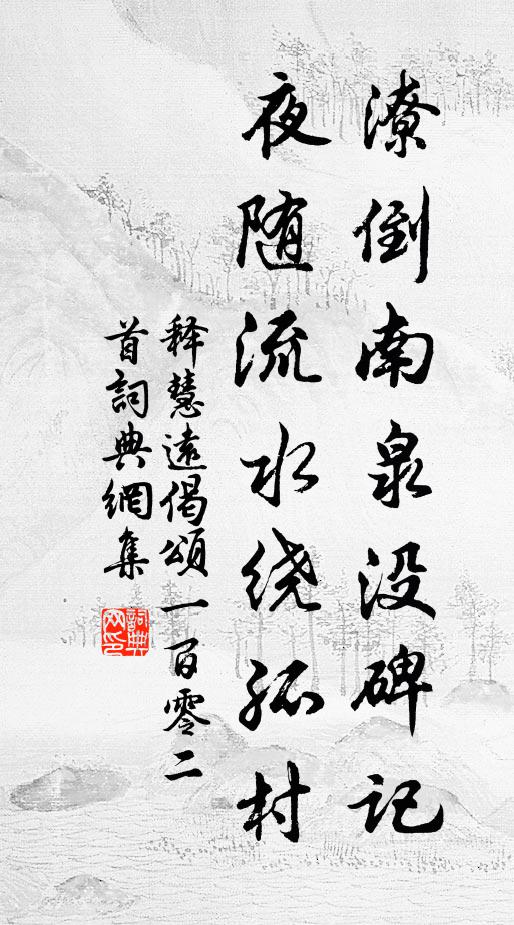 潦倒南泉没碑记
夜随流水绕孤村
释慧遠偈頌一百零二
首詞典網集
詞典
网印